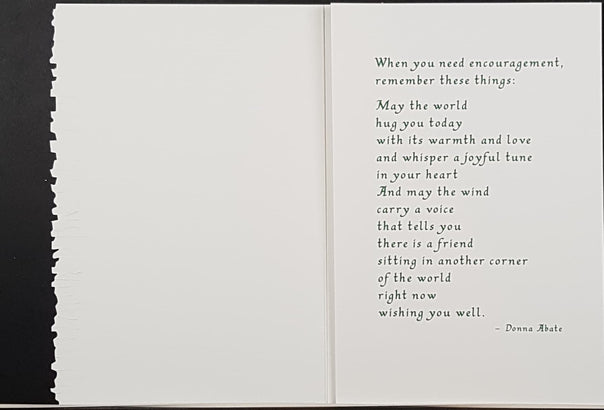 When you need encouragement,
remember these things:
May the world
hug you today
with its warmth and love
and whisper a joyful tune
in your heart
And may the wind
carry a voice
that tells you
there is a friend
sitting in another corner
of the world
right now
wishing you well.
– Donna Abate